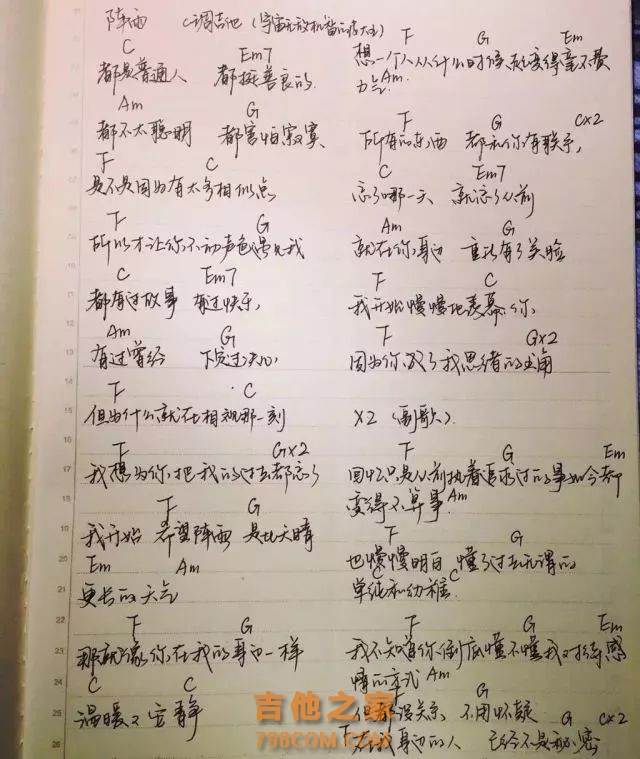 阵雨 C调吉他
C Em7
都是普通人 都挺善良的
Am G
都不太聪明 都害怕寂寞
F C
是不是因为有太多相似点
F G
所以才让你不动声色遇见我
C Em7
都有过故事 有过快乐
Am G
有过曾经 下定过决心
F C
但为什么就在相视那一刻
F G×2
我想为你把我的过去都忘了
F G
我开始希望阵雨 是比天晴
Em Am
更长的天气
F G
那就像你在我的身边一样
C C
温暖又安静
F G Em
想一个人从什么时候变得毫不费
力气 Am
F G C×2
所有的东西 都和你有联系
C Em7
忘了哪一天 就忘了从前
Am G
就在你身边 重新有了笑脸
F C
我开始慢慢地羡慕你
F G×2
因为你成了我思绪的主角
×2 (副歌)
F G Em
回忆只是从前执着追求过的事如今都
变得不算事 Am
F G
也慢慢明白 懂了过去所谓的
C C
单纯和幼稚
F G Em
我不知道你到底懂不懂我对待感
情的方式 Am
F G
但都没关系 不用怀疑
F G C×2
在我身边的人 已经不是秘密
吉他之家
798COM.COM